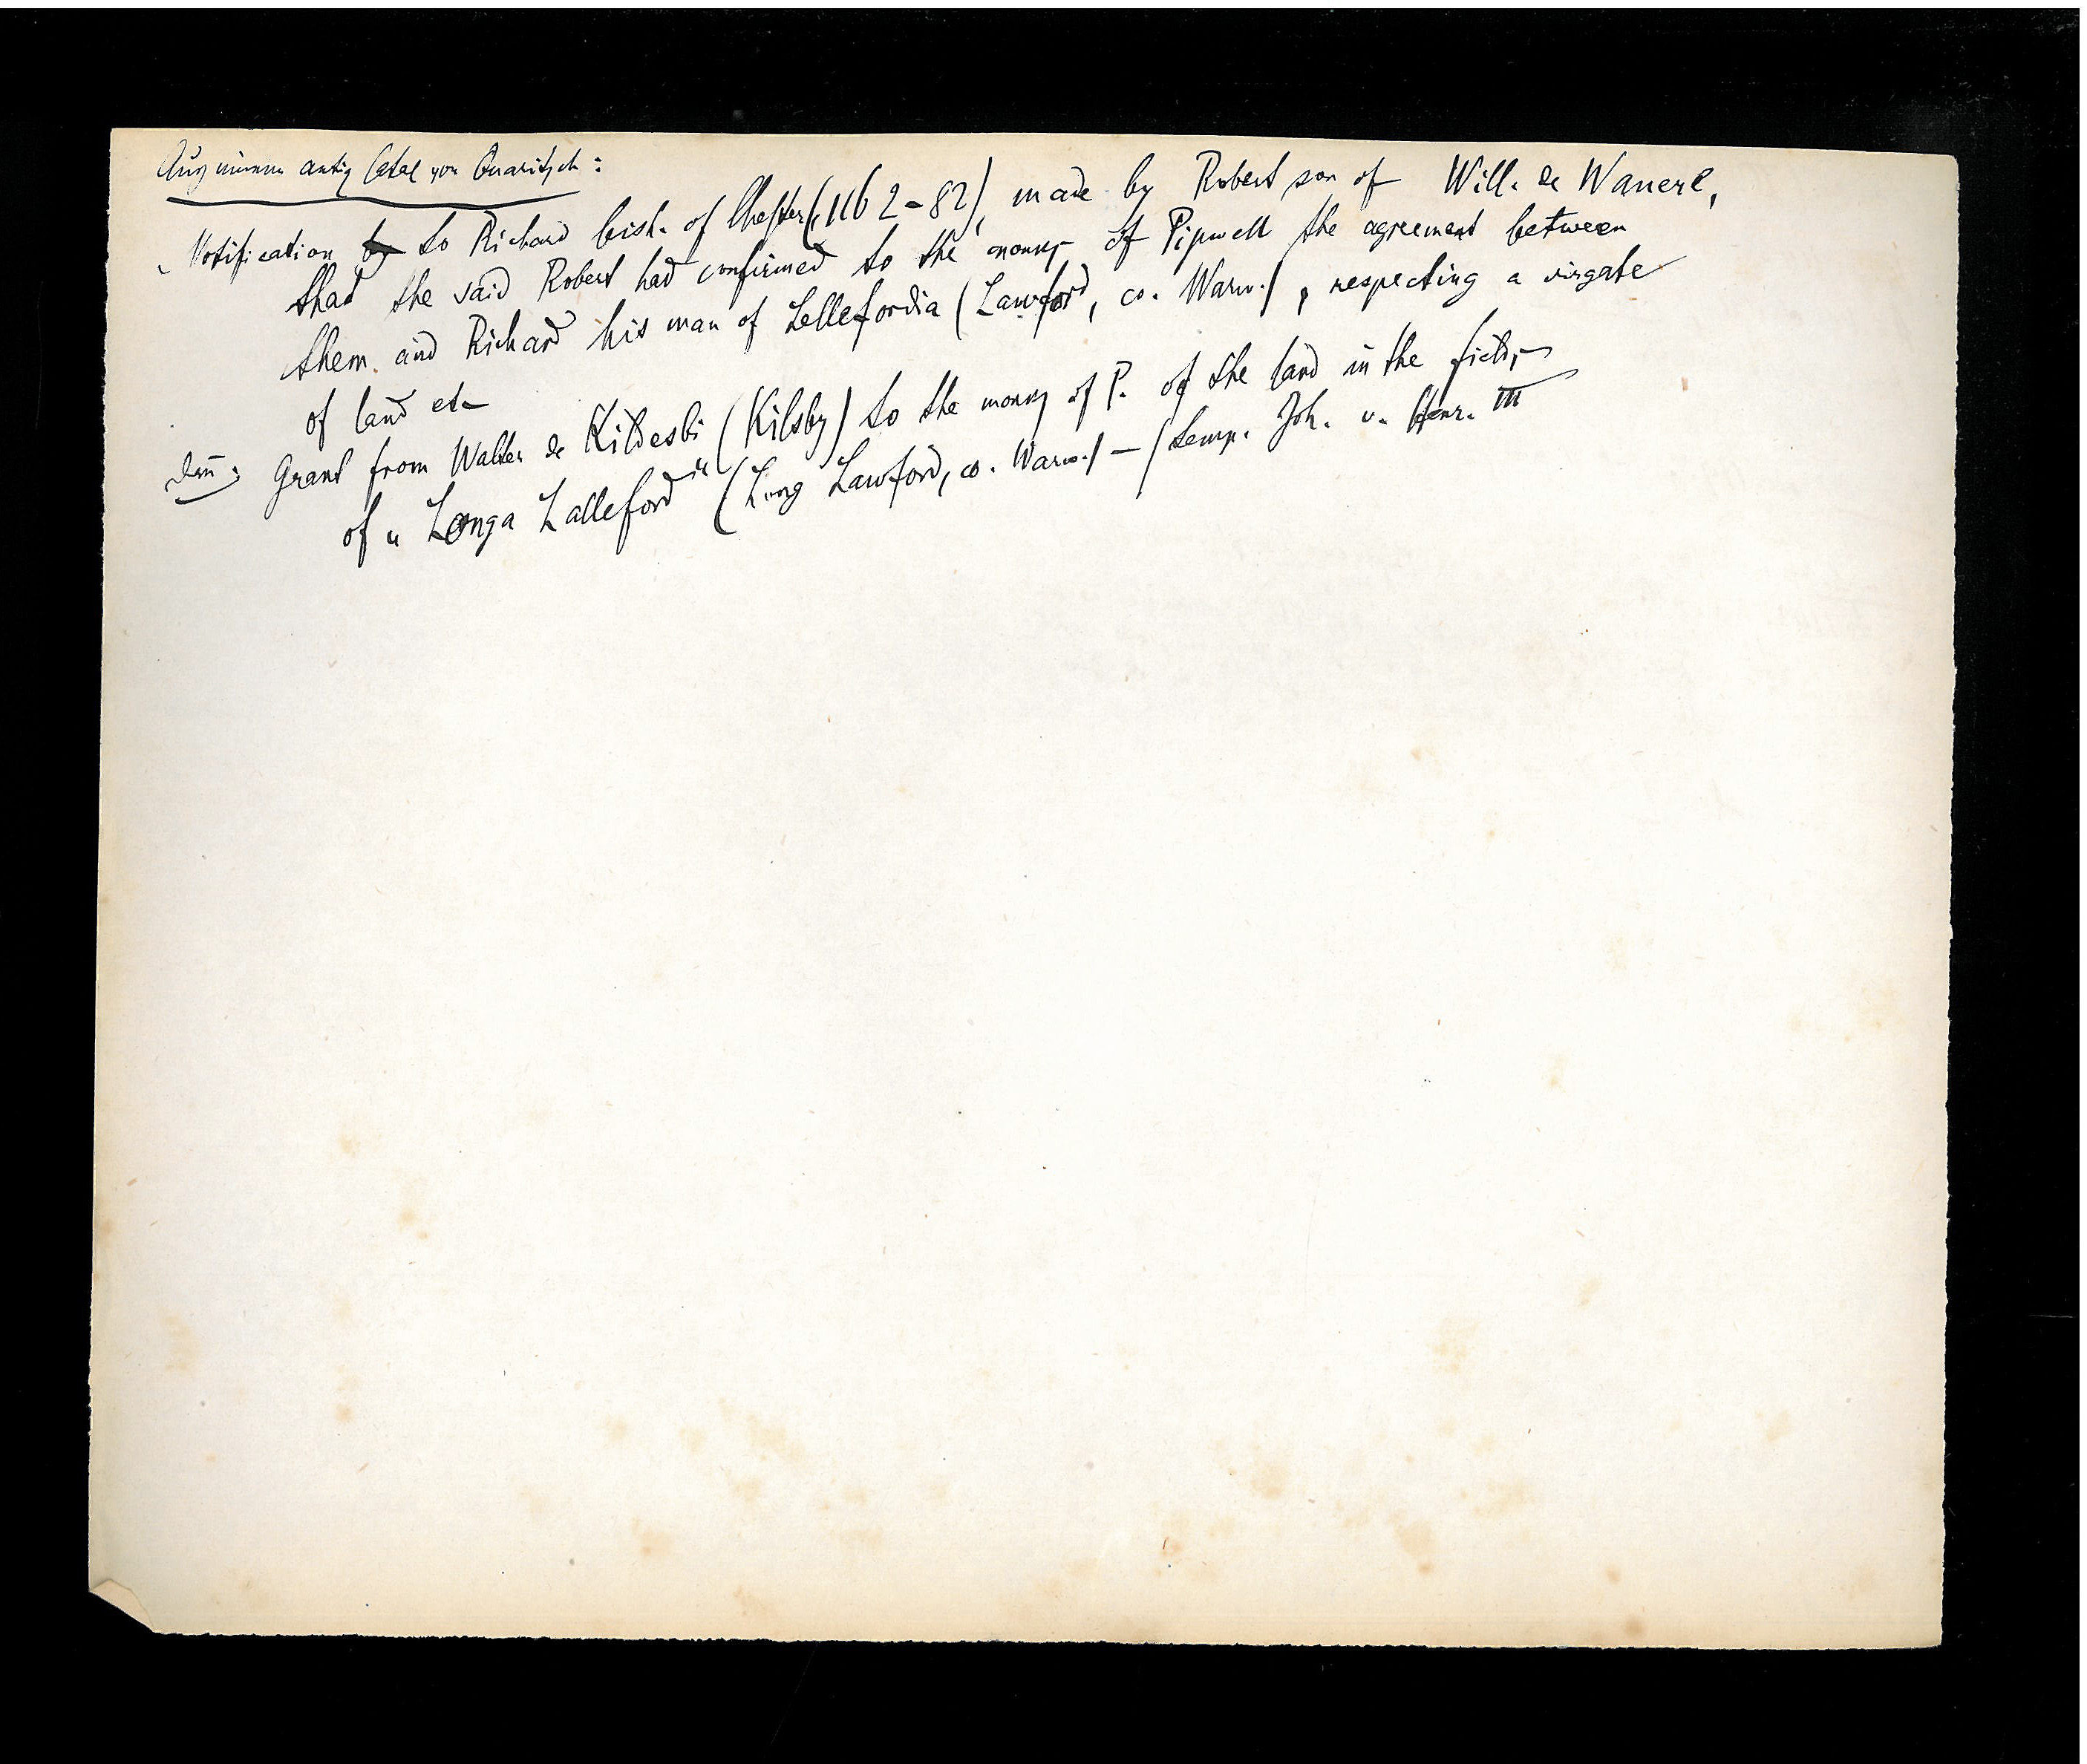 Aus einem antiq Catal von Quaritsch:
„Notification by to Richard bish. of Chester (1162-82), made by Robert son of Will. de Waverl,
that the said Robert had confirmed to the monks of Pipwell the agreement between
them and Richard his man of Lellefordia (Lawford, co. Warw.), respecting a virgate
of land etc
Dan̄: Grant from Walter de Kildesbi (Kilsby) to the monks of P. of the land in the fields
of „Longa Lalleford" (Long Lawford, co. Warw.) — (temp. Joh. v. Henr. III